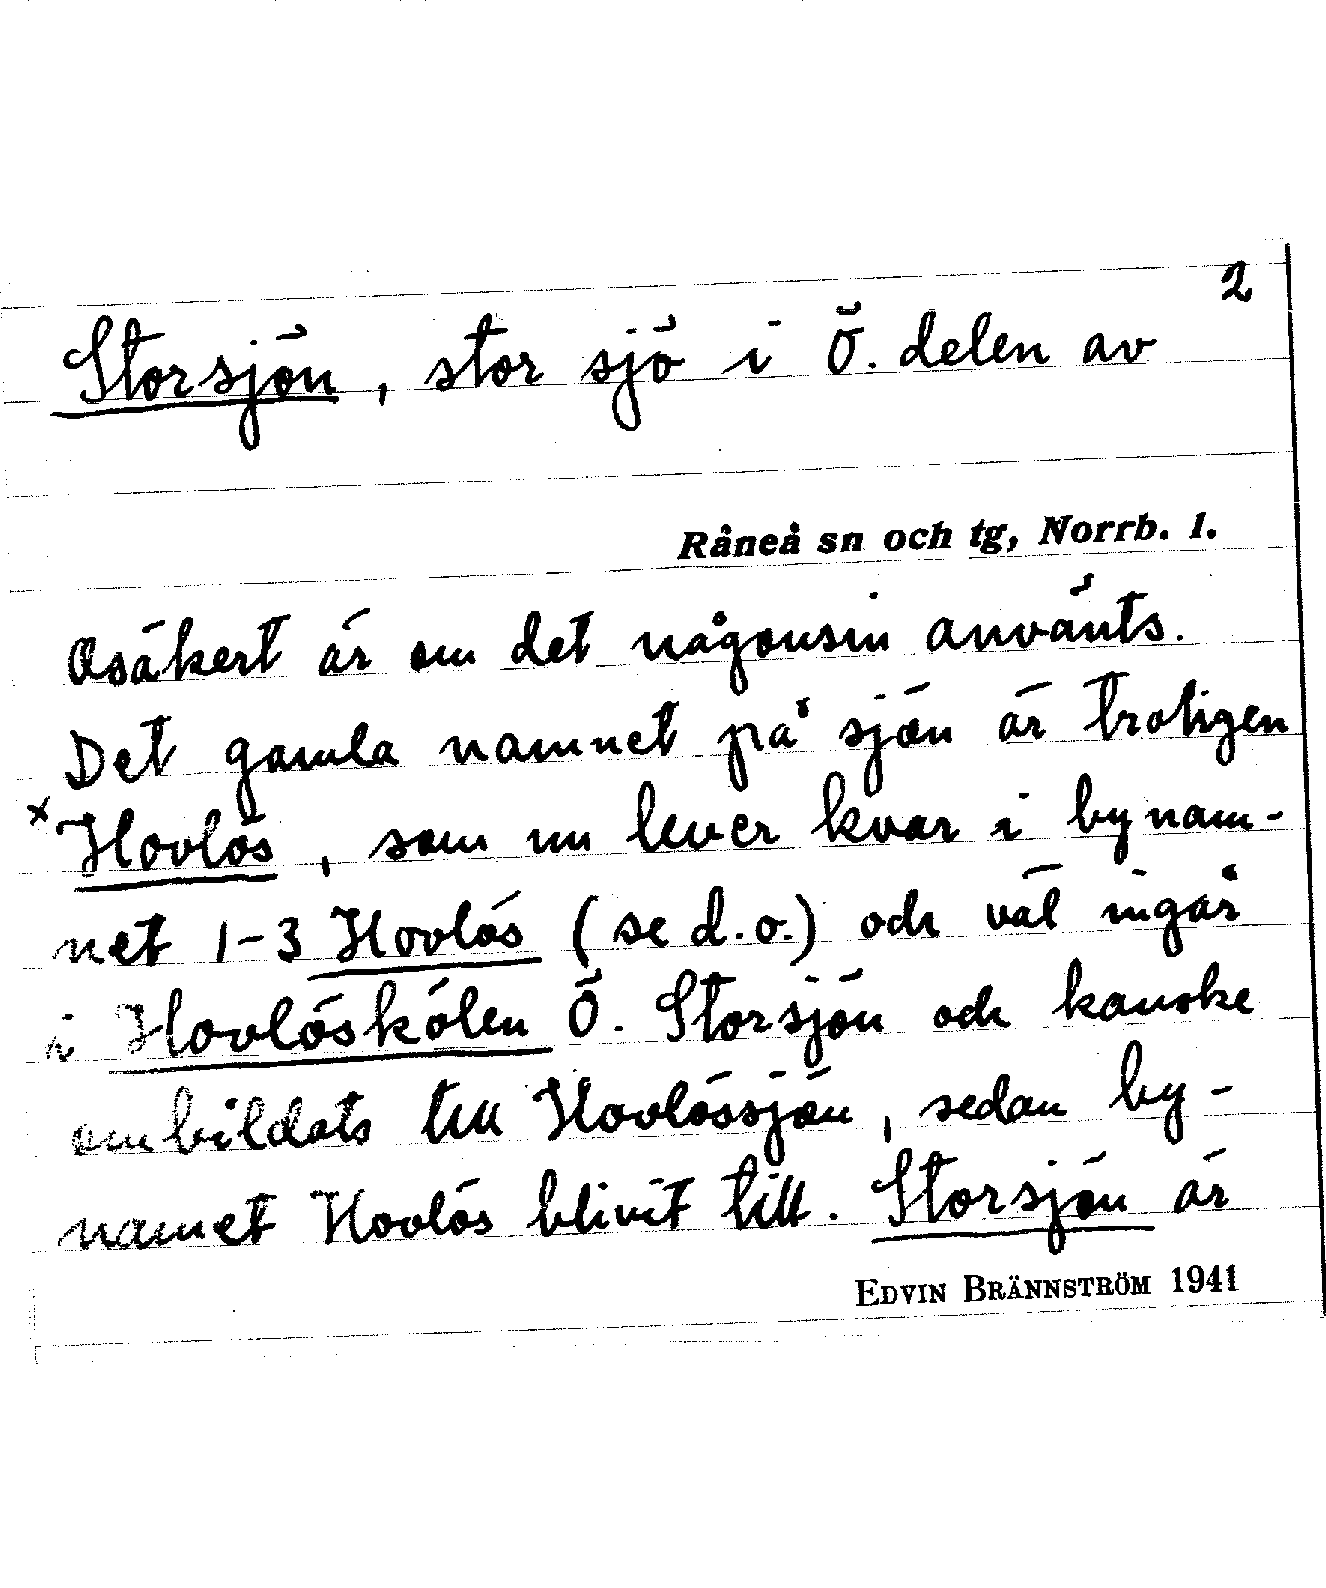 2
Storsjön, stor sjö i Ö. delen av
Råneå sn och tg, Norrb. l.
Osäkert är om det någonsin använts.
Det gamla namnet på sjön är troligen
×Hovlös, som nu lever kvar i bynam-
net 1-3 Hovlös (se d.o.) och väl ingår
i Hovlöskölen Ö. Storsjön och kanske
ombildats till Hovlössjön, sedan by-
namet Hovlös blivit till. Storsjön är
EDVIN BRÄNNSTRÖM 1941